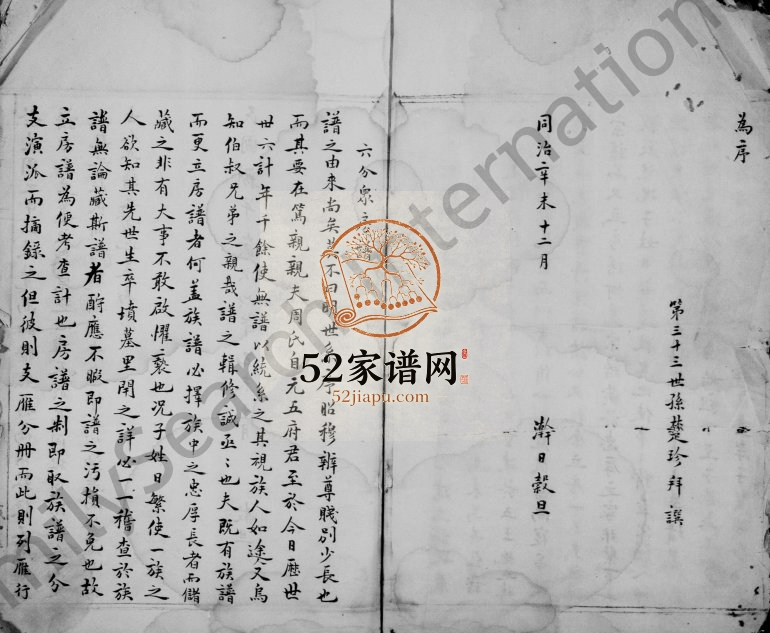 為序
第三十三世孫楚珍拜譔
同治辛未十二月 澣日穀旦
六分衆
譜之由來尚矣其不曰明世系序昭穆辨尊賤別少長也
而其要在篤親親夫周氏自元五府君至於今日歷世
世六計年千餘使無譜以統系之其視族人如途人又烏
知伯叔兄弟之親哉譜之輯修誠亟亟也夫既有族譜
而更立房譜者何盖族譜必擇族中之忠厚長者而儲
藏之非有大事不敢啟懼褻也况子姓日繁使一族之
人欲知其先世生卒墳墓里閈之詳必一一稽查於族
譜無論藏斯譜者酧應不暇即譜之污損不免也故
立房譜為便考查計也房譜之制即取族譜之分
支演派而摘錄之但彼則支雁分冊而此則列雁行
52家谱网
52jiapu.com
FamilySearch International